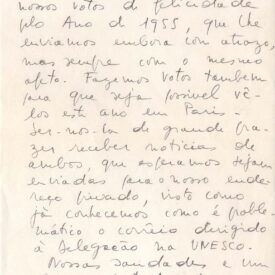 nossos votos de felicidade
plo Ano de 1955, que lhe
enviamos embora com atrazo,
mas sempre com o mesmo
afeto. Fazemos votos também
para que seja possível vê-
los este ano em Paris.
Ser-nos-ia de grande pra-
zer receber noticias de
ambos, que esperamos sejam
enviadas para o nosso ende-
reço privado, visto como
já conhecemos como é proble-
mático o correio dirigido
à Delegação na UNESCO.
Nossas saudades e um